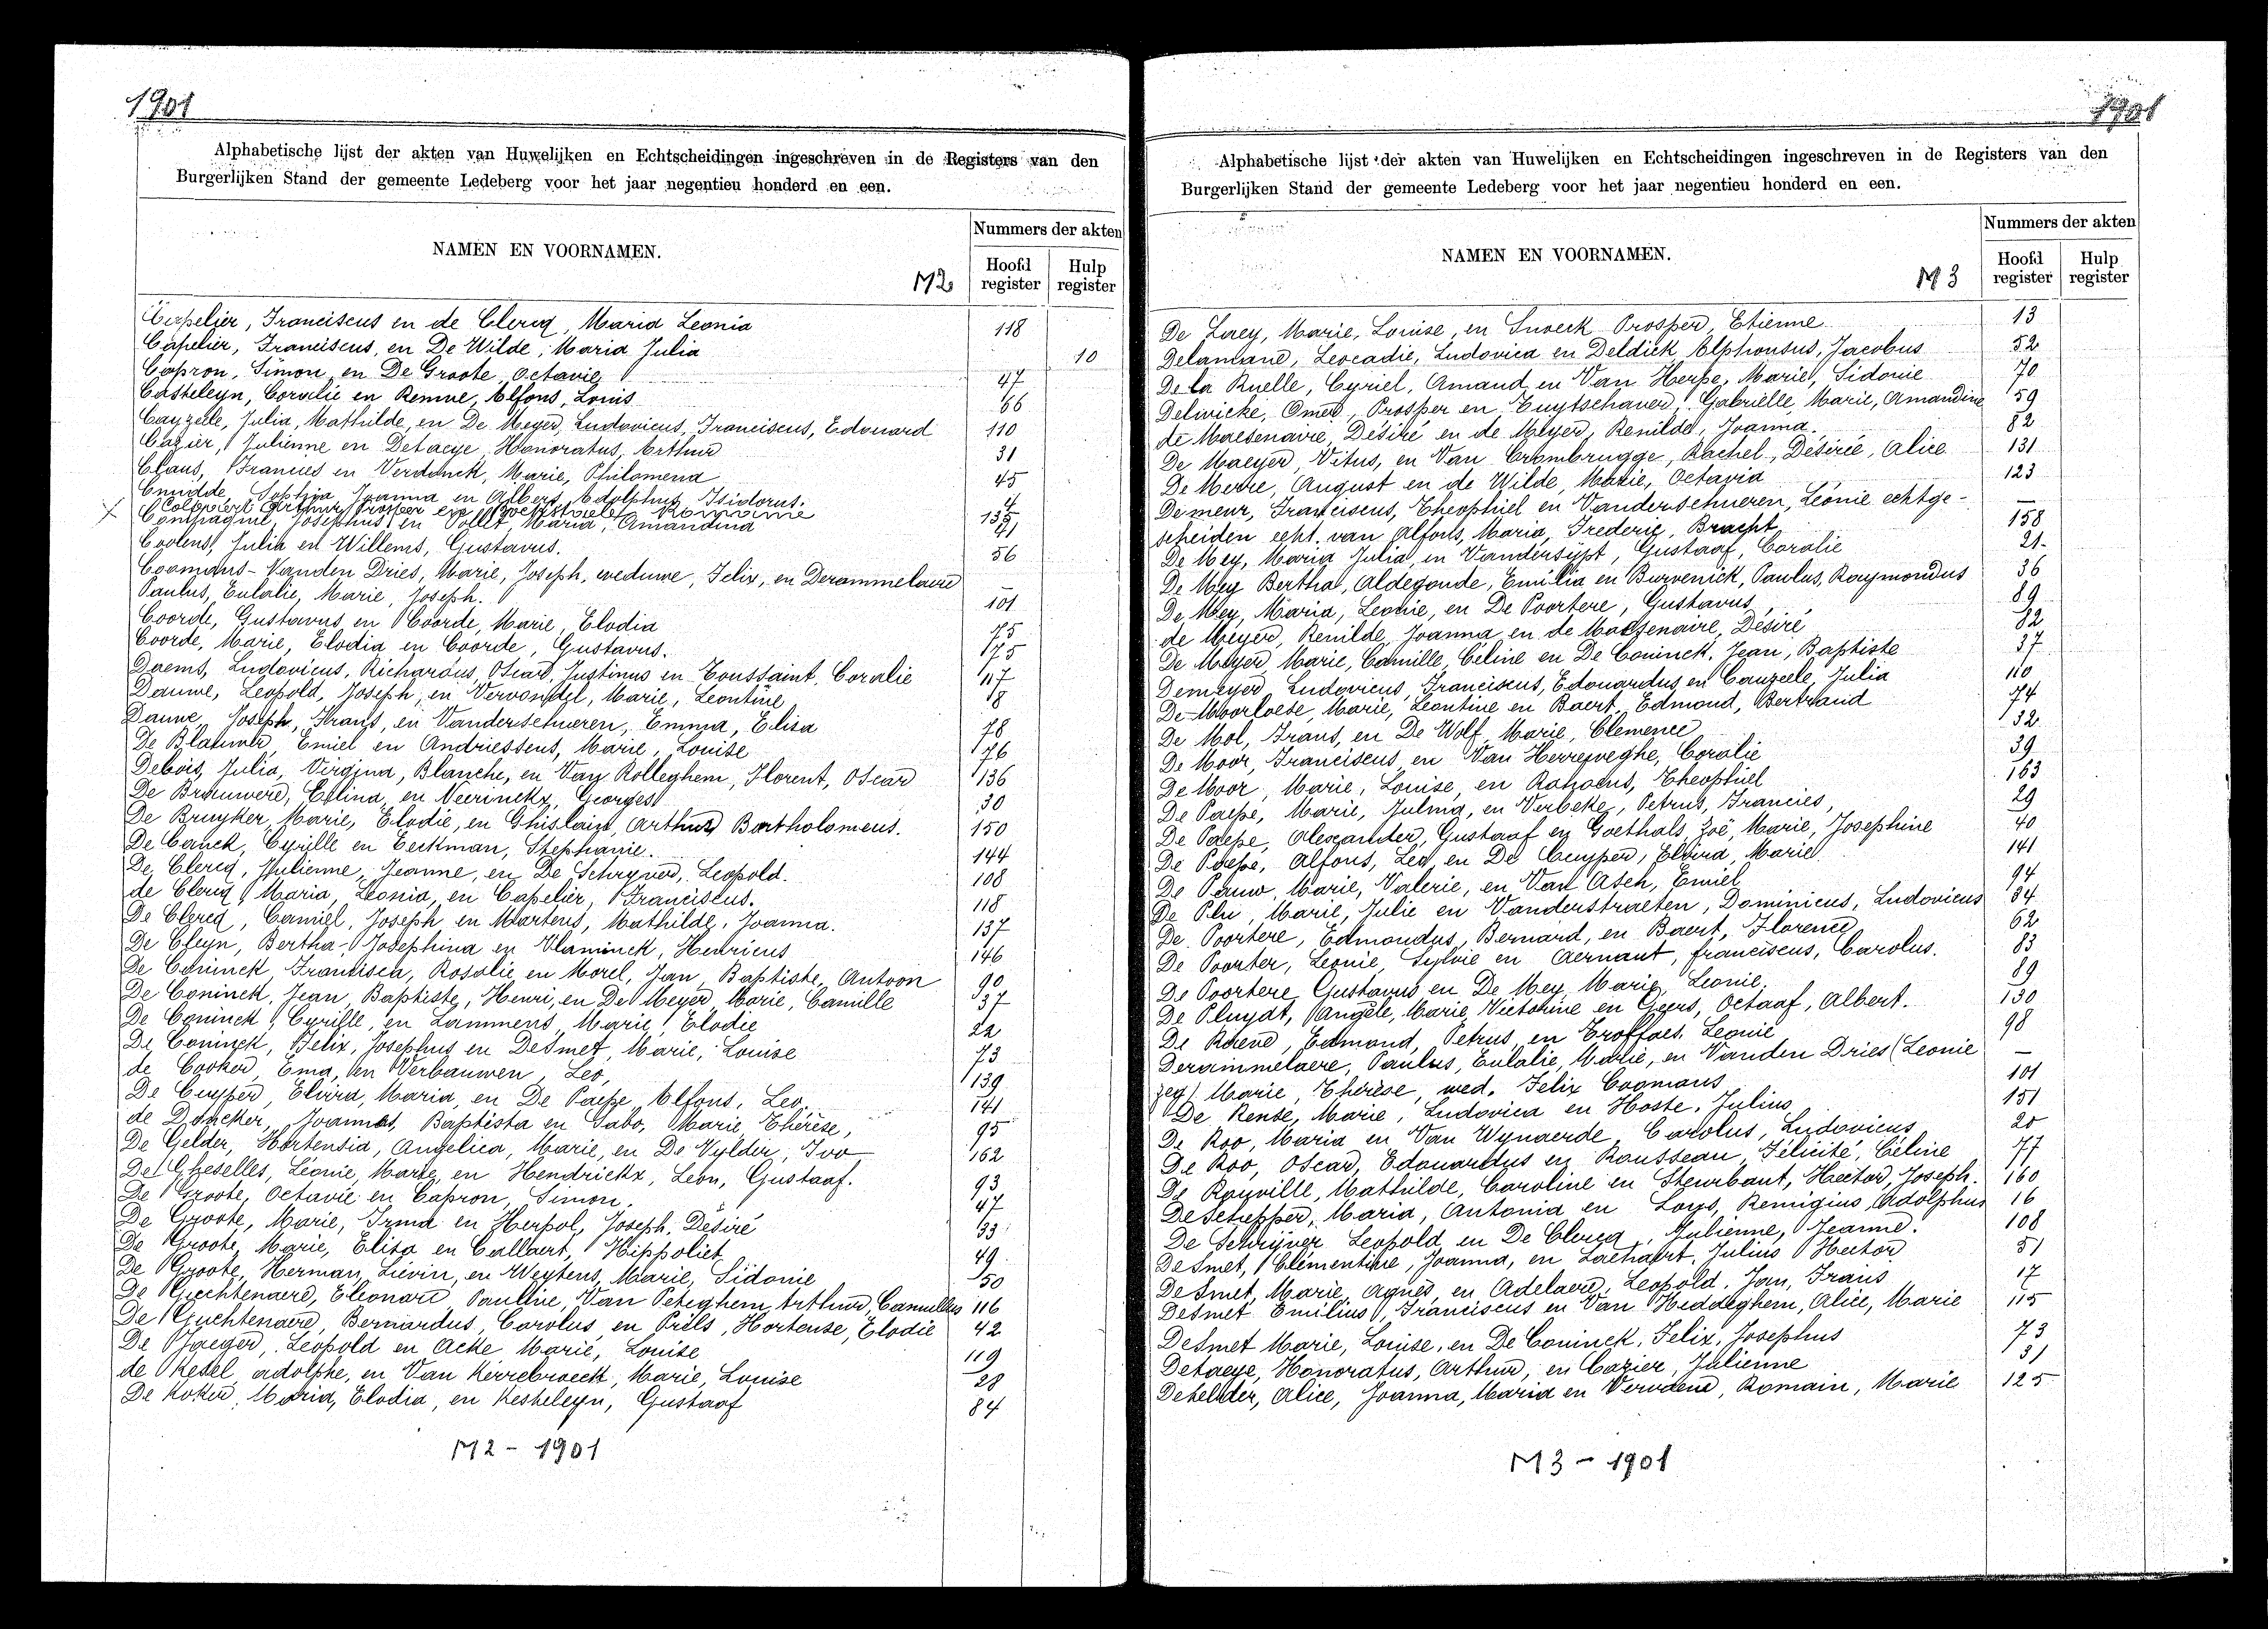 1901
Alphabetische lijst der akten van Huwelijken en Echtscheidingen ingeschreven in de Registers van den
Burgerlijken Stand der gemeente Ledeberg voor het jaar negentieu honderd en een.
NAMEN EN VOORNAMEN.
M2
Nummers der akten
Hoofd register
Hulp register
Capelier, Franciscus en de Clercq, Maria Leonia 118
Capelier, Franciscus, en De Wilde, Maria Julia 10
Capron, Simon, en De Groote, Octavie 47
Casteleyn, Coralie en Remue, Alfons, Louis 66
Cayzeele, Julia, Mathilde, en De Meyer, Ludovicus, Franciscus, Edouard 110
Cazier, Julienne en Detaeye, Honoratus, Arthur 31
Claus, Francies en Verdonck, Marie, Philomena 45
Cnudde, Sophia, Joanna en Albers, Adolphus, Isidorus. 4
Arthur, Prosper en Romanie 135
Compagnie, Josephus, en Pollet, Maria, Amandina 41
Coolens, Julia en Willems, Gustavus. 56
Coomans-Vanden Dries, Marie, Joseph, weduwe, Felix, en Derammelaere —
Paulus, Eulalie, Marie, Joseph. 101
Coorde, Gustavus en Coorde, Marie, Elodia 75
Coorde, Marie, Elodia en Coorde, Gustavus. 75
Daems, Ludovicus, Richardus, Oscar, Justinus en Toussaint, Coralie 117
Dauwe, Leopold, Joseph, en Vervondel, Marie, Leontine 8
Dauwe, Joseph, Frans, en Vanderschueren, Emma, Elisa 78
De Blauwer, Emiel en Andriessens, Marie, Louise 76
Debois, Julia, Virgina, Blanche, en Van Rolleghem, Florent, Oscar 136
De Brauwere, Celina, en Neerinckx, Georges 30
De Bruyker, Marie, Elodie, en Ghislain, Arthur Bartholomeus. 150
De Canck, Cyrille en Eeckman, Stephanie. 144
De Clercq, Julienne, Jeanne, en De Schryver, Leopold. 108
de Clercq, Maria, Leonia, en Capelier, Franciscus. 118
De Clercq, Camiel, Joseph en Martens, Mathilde, Joanna. 137
De Cleyn, Bertha, Josephina en Vlaminck, Henricus 146
De Coninck, Francisca, Rosalie en Morel, Jan, Baptiste, Antoon 90
De Coninck, Jean, Baptiste, Henri, en De Meyer, Marie, Camille 37
De Coninck, Cyrille, en Lammens, Marie, Elodie 22
De Coninck, Felix, Josephus en DeSmet, Marie, Louise 73
de Cooker, Ema, en Verbauwen, Leo, 139
De Cuyper, Elvira, Maria, en De Paepe, Alfons, Leo. 141
de Doncker, Joannes, Baptista en Sabo, Marie, Thérèse, 95
De Gelder, Hortensia, Angelica, Marie, en De Vylder, Ivo 162
De Gheselles, Léonie, Marie, en Hendrickx, Leon, Gustaaf. 93
De Groote, Octavie en Capron, Simon, 47
De Groote, Marie, Irma en Herpol, Joseph, Désiré 33
De Groote, Marie, Elisa en Callaert, Hippoliet 49
De Groote, Herman, Liévin, en Weytens, Marie, Sidonie 50
De Guchtenaere, Eleonare Pauline, Van Peteghem, Arthur, Camillus 116
De Guchtenaere, Bernardus, Carolus, en Priels, Hortense, Elodie 42
De Jaeger, Leopold en Acke Marie, Louise 119
de Kedel, adolphe, en Van Kerrebroeck, Marie, Louise 28
De Koker, Maria, Elodia, en Kesteleyn, Gustaaf 84
M2 - 1901
1901
Alphabetische lijst der akten van Huwelijken en Echtscheidingen ingeschreven in de Registers van den
Burgerlijken Stand der gemeente Ledeberg voor het jaar negentieu honderd en een.
NAMEN EN VOORNAMEN.
M3
Nummers der akten
Hoofd register
Hulp register
De Laey, Marie, Louise, en Snoeck Prosper, Etienne 13
Delamane, Leocadie, Ludovica en Deldick, Alphonsus, Jacobus 52
De la Ruelle, Cyriel, Amand, en Van Herpe, Marie, Sidonie 70
Delwicke, Omer, Prosper en Tuytschaver, Gabrielle, Marie, Amandine 59
de Maesenaire, Désiré en de Meyer, Renilde, Joanna. 82
De Maeyer, Vitus, en Van Crombrugge, Rachel, Désirée, Alice 131
De Merre, August en de Wilde, Marie, Octavia 123
Demeur, Franciscus, Theophiel en Vanderschueren, Léonie echtge- —
scheiden echt. van Alfons, Maria, Frederic, Bracht 158
De Mey, Maria Julia, en Vandersypt, Gustaaf, Coralie 21
De Mey Bertha, Aldegonde, Emilia en Burvenick, Paulus, Raymondus 36
De Mey, Maria, Leonie, en De Poortere, Gustavus, 89
de Meyer, Renilde, Joanna en de Maesenaire, Désiré 82
De Meyer, Marie, Camille, Céline en De Coninck, Jean, Baptiste 37
Demeyer, Ludovicus, Franciscus, Edouardus en Cauzeele, Julia 110
De Moorloese, Marie, Leontine en Baert, Edmond, Bertrand 74
De Mol, Frans, en De Wolf, Marie, Clemence 32
De Moor, Franciscus, en Van Herreweghe, Coralie 39
De Moor, Marie, Louise, en Rahoens, Theophiel 163
De Paepe, Marie, Julma, en Verbeke, Petrus, Francies, 29
De Paepe, Alexander, Gustaaf en Goethals, Zoë, Marie, Josephine 40
De Paepe, Alfons, Leo, en De Cuyper, Elvira, Marie 141
De Pauw, Marie, Valerie, en Van Asch, Emiel 94
De Plu, Marie, Julie en Vanderstraeten, Dominicus, Ludovicus 34
De Poortere, Edmondus, Bernard, en Baert, Florence 62
De Poorter, Leonie, Sylvie en Aernaut, franciscus, Carolus. 83
De Poortere Gustavus en De Mey, Marie, Leonie. 89
De Pluydt, Angèle, Marie, Victorine en Geers, Octaaf, Albert. 130
De Raeve, Edmond, Petrus, en Troffaes, Leonie 98
Derammelaere, Paulus, Eulalie, Marie, en Vanden Dries (Leonie —
zeg) Marie, Thérèse, wed. Felix Coomans 101
De Rense, Marie, Ludovica en Hoste, Julius 151
De Roo, Maria en Van Wynaerde, Carolus, Ludovicus 20
De Roo, Oscar, Edouardus en Rousseau, Félicité, Céline 77
De Rouville, Mathilde, Caroline en Steurbaut, Hector, Joseph. 160
De Schepper, Maria, Antonia en Loys, Remigius, Adolphus 16
De Schrijver Leopold en De Clercq, Julienne, Jeanne. 108
DeSmet, Clementine, Joanna, en Lachaert, Julius Hector 51
DeSmet, Marie, Agnes, en Adelaere, Leopold, Jan, Frans 17
DeSmet Emilius, Franciscus en Van Heddeghem, Alice, Marie 115
DeSmet Marie, Louise, en De Coninck, Felix, Josephus 73
Detaeye, Honoratus, Arthur, en Cazier, Julienne 31
Dekelder, Alice, Joanna, Maria en Vervaene, Romain, Marie 125
M3 - 1901